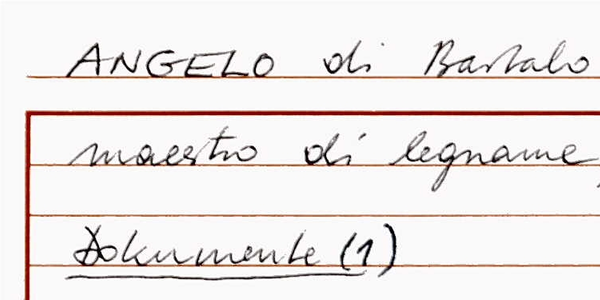 ANGELO di Bartalo
maestro di legname,
Dokumente (1)